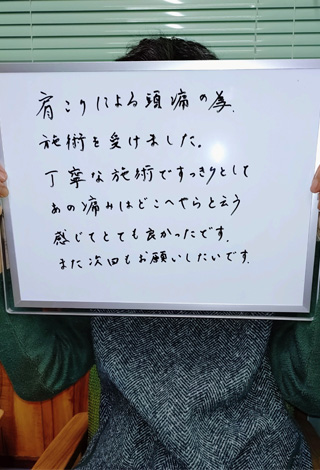 肩こりによる頭痛の為、
施術を受けました。
丁寧な施術ですっきりとして
あの痛みはどこへやらと云う
感じでとても良かったです。
また次回もお願いしたいです。